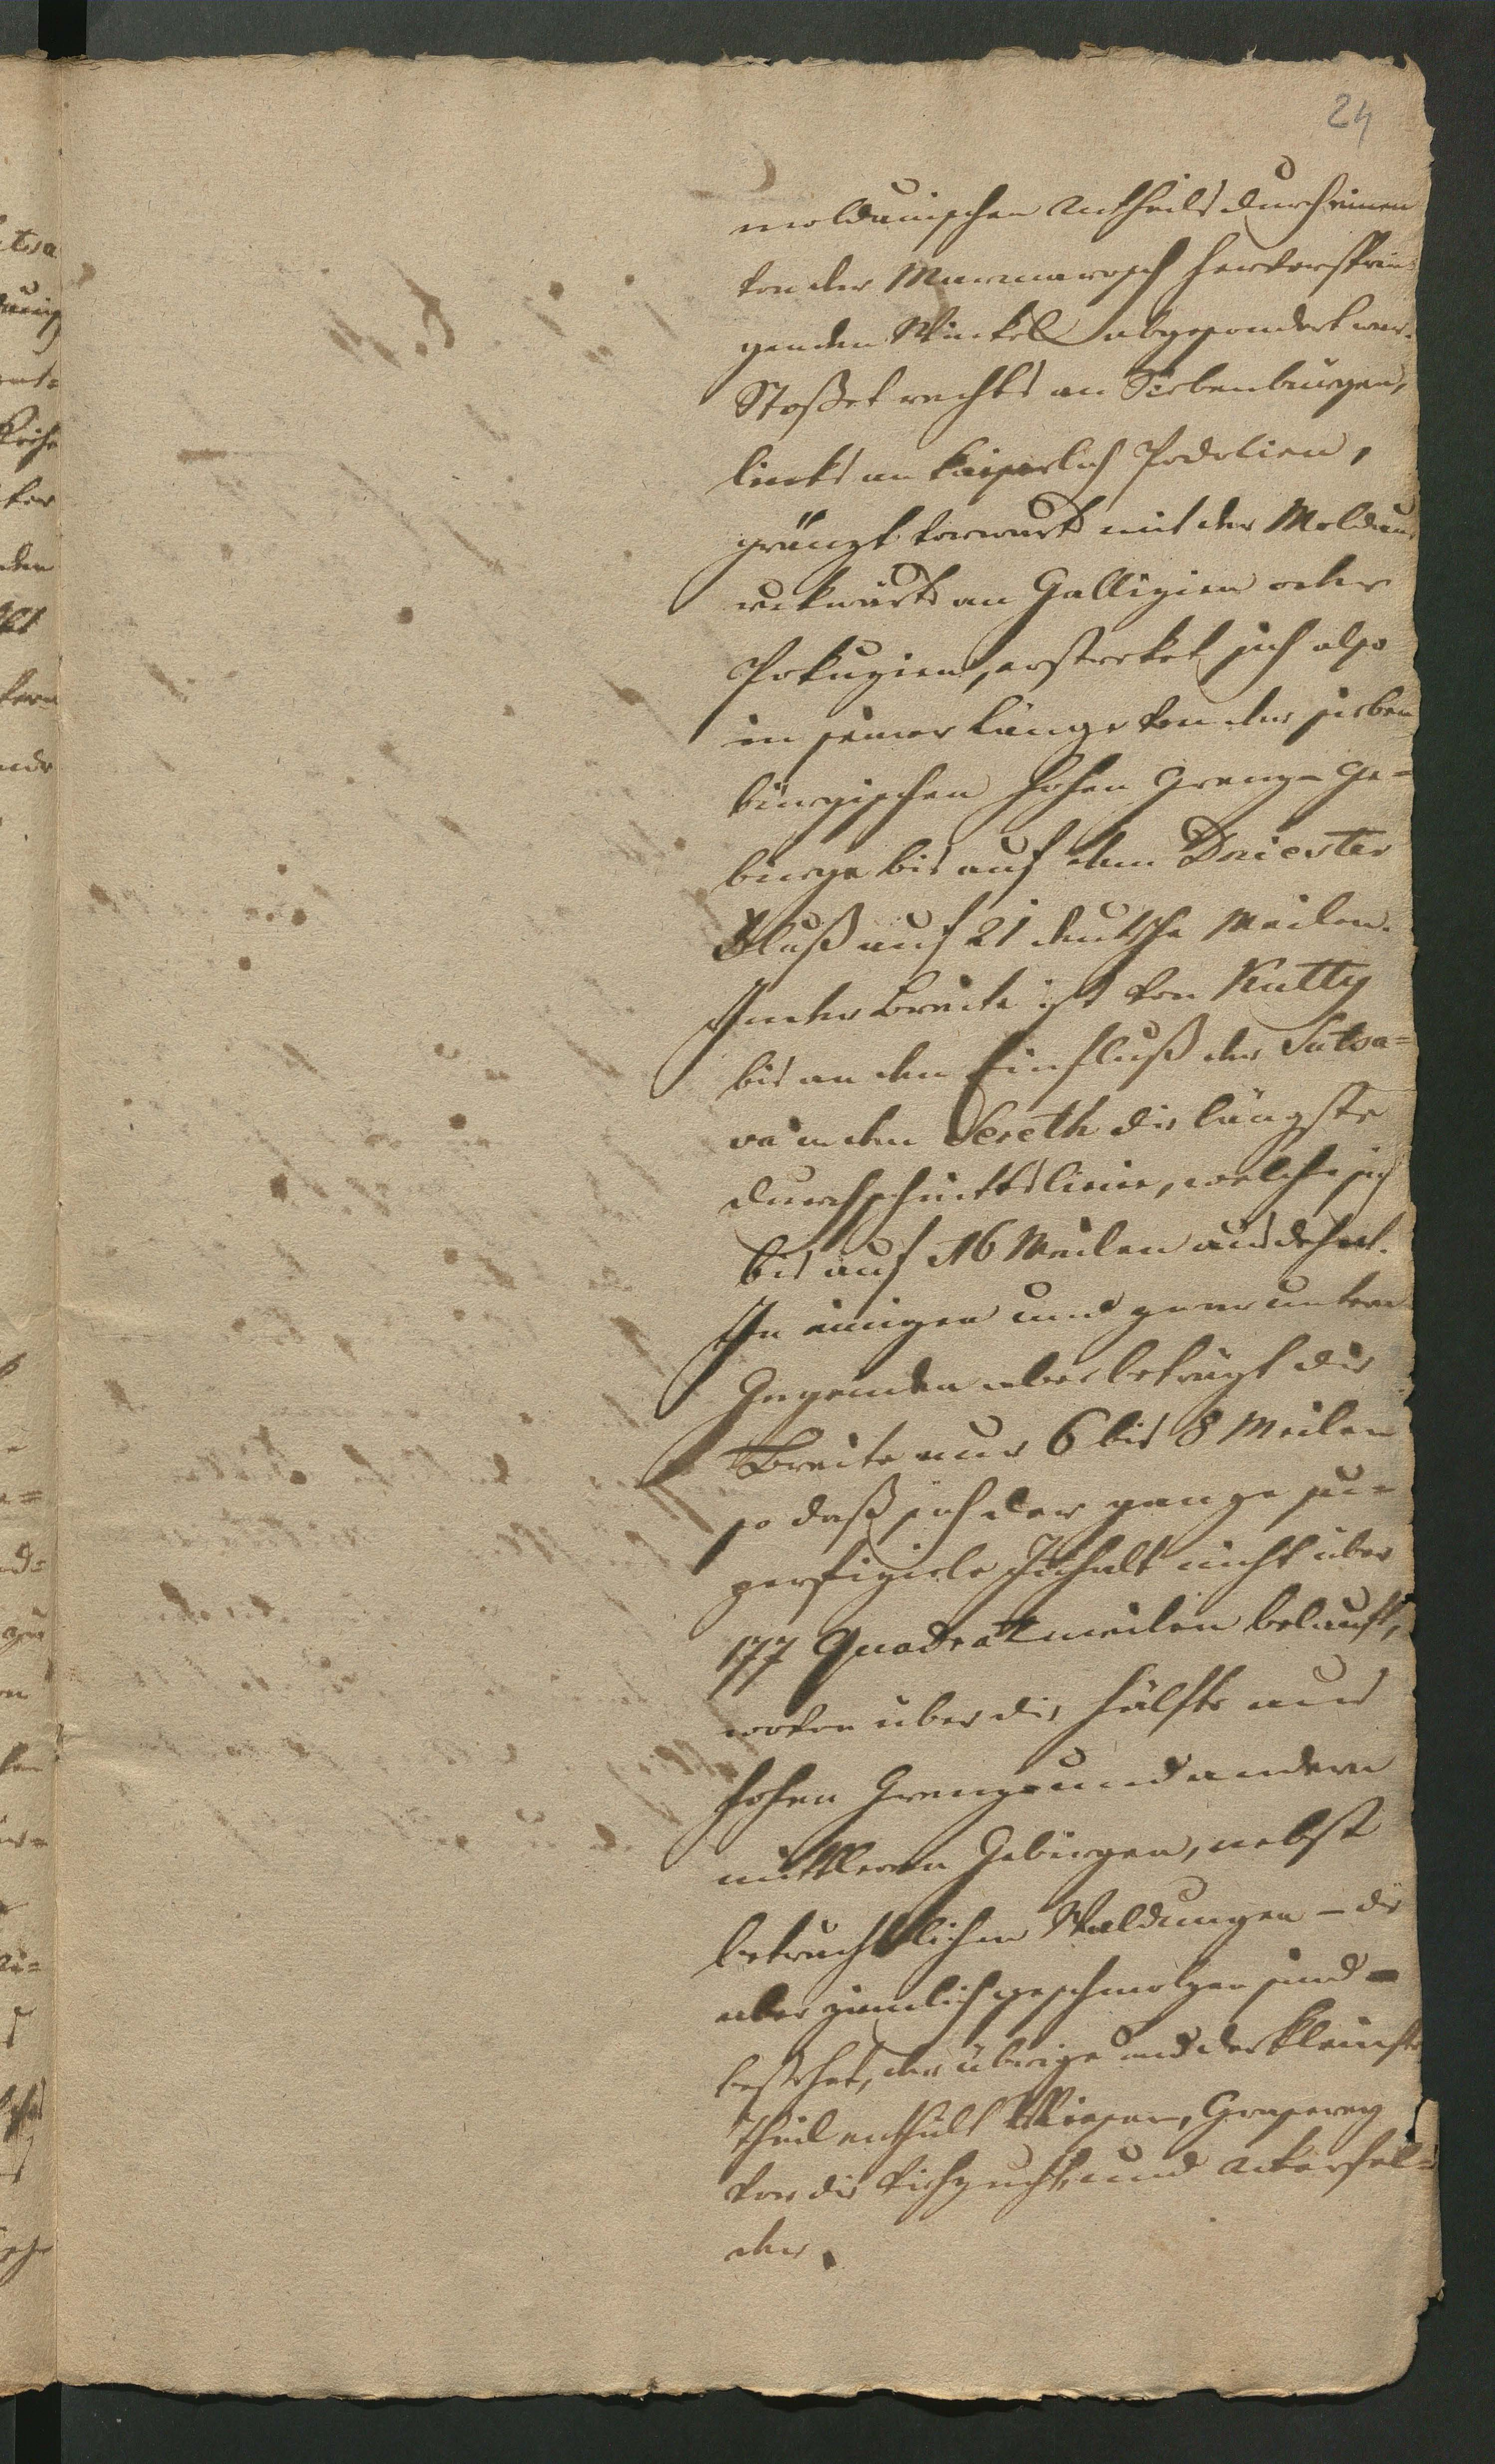 24
moldauischen Antheils durch einen
von der Marmarosch hervorsprin¬
genden Winkel abgesondert war.
Stoßet rechts an Siebenbürgen,
links an kaiserlich Podolien,
gränzt vorwarts mit der Moldau,
rukwärts an Gallizien oder
Pokuzien, erstreket sich also
in seiner Länge von den sieben
bürgischen hohen Grenz-Ge=
bürge bis auf dem Dniester
Fluß auf 21 deutsche Meilen.
In der Breite ist von Kutty
bis an den Einfluß der Sutsa=
va in den Sereth die längste
Durchschnittslinie, welche sich
bis auf 16 Meilen ausdehnt.
In einigen und zwar untern
Gegenden aber beträgt die
Breite nur 6 bis 8 Meilen
so daß sich der ganze su=
perfiziele Inhalt nicht über
177 Quadratmeilen belauft,
wovon über die Hälfte aus
hohen Grenz und andern
mittleren Gebürgen, nebst
betrachtlichen Waldungen – die
aber ziemlich geschmolzen sind –
bestehet, der übrige und der kleinste
Theil enthält Wiesen, Graserey
vor die Viehzucht, und Akerfel=
der.